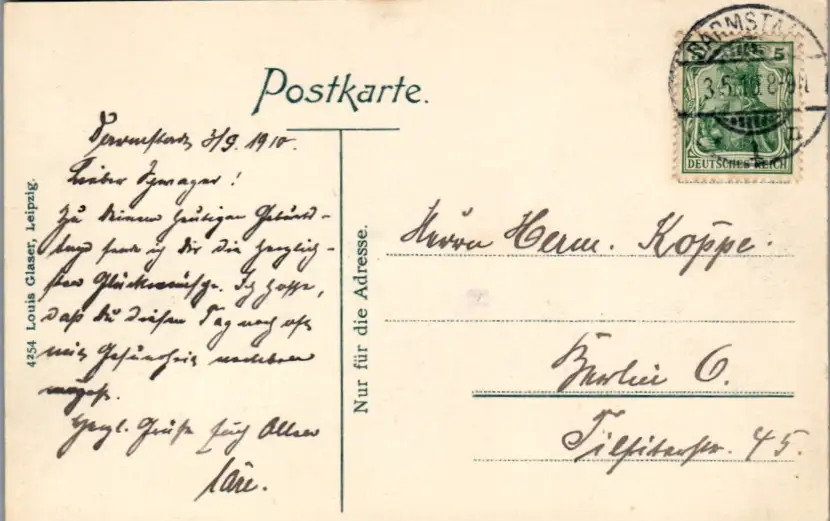 Postkarte.
DARMSTA
3.5.10.8-9N
5
DEUTSCHES REICH
Darmstadt, 3/9. 1910.
Lieber Schwager!
Zu deinem heutigen Geburts-
tage sende ich dir die herzlich-
sten Glückwünsche. Ich hoffe,
daß du diesen Tag noch oft
mit Gesundheit
mögest.
Herzl. Grüße Euch Allen
Herrn Herm. Koppe.
Berlin O.
Tilsiterstr. 45.
Nur für die Adresse.
4254 Louis Glaser, Leipzig.